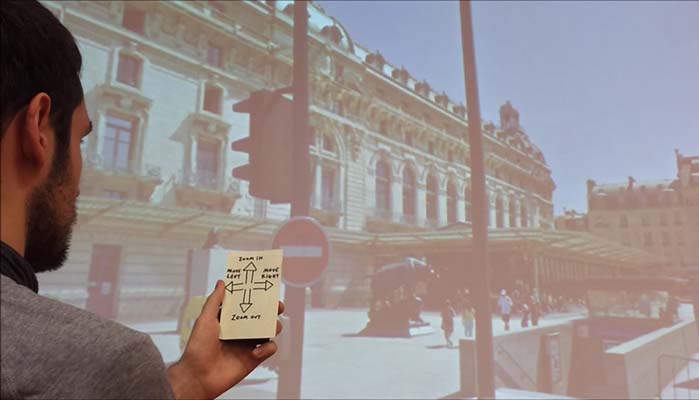 ZOOM IN
MOVE LEFT
MOVE RIGHT
ZOOM OUT